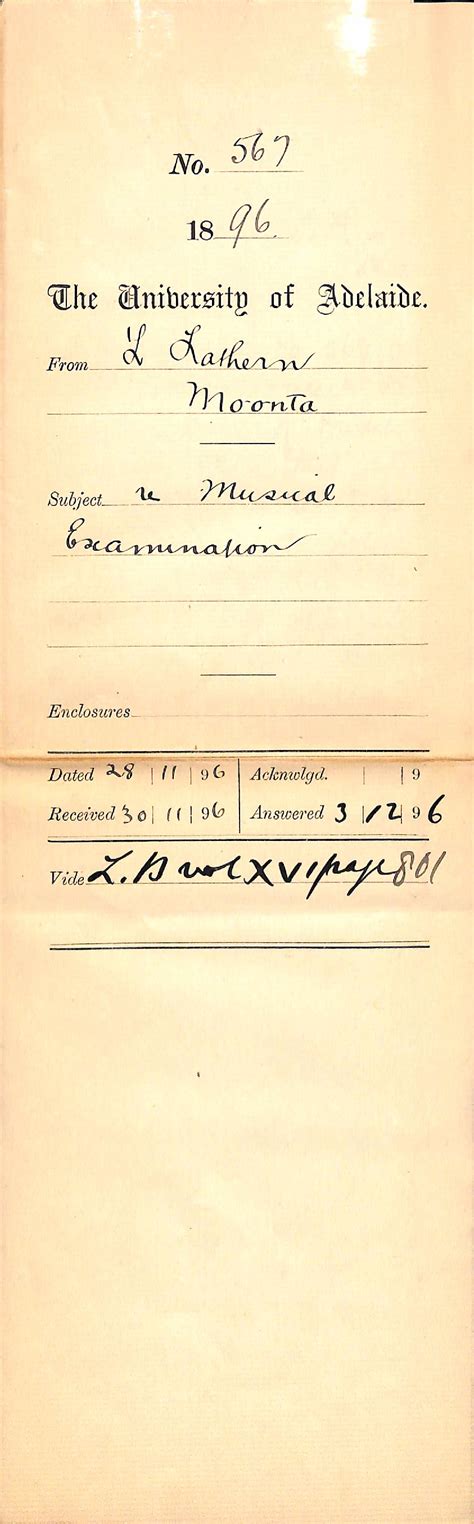 No. 567
1896.
The University of Adelaide.
From L Lathern
Moonta
Subject re Musical
Examination
Enclosures
Dated 28 | 11 | 96 Acknwlgd. | | 9
Received 30 | 11 | 96 Answered 3 | 12 | 96
Vide L. B vol XVI page 801